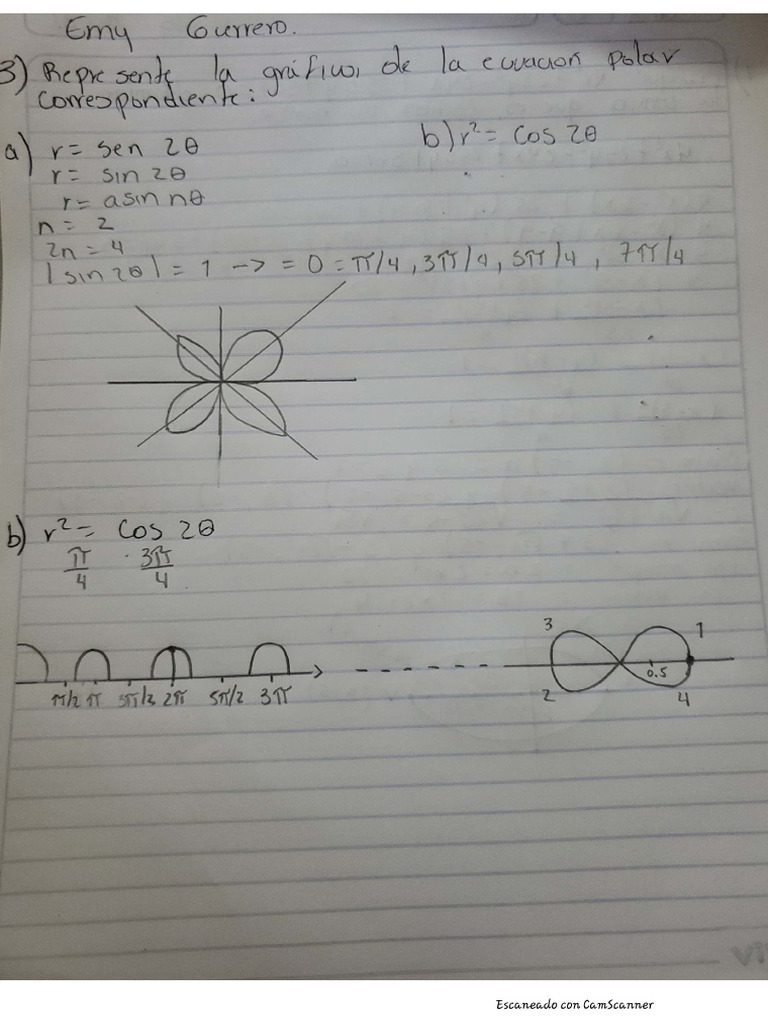 Emy Gurrero.
3) Represente la gráfica, de la ecuacion polar
correspondiente:
a) r = sen 2θ
b) r² = cos 2θ
r = sin 2θ
r = asin nθ
n = 2
2n = 4
|sin 2θ| = 1 -> = 0 = π/4, 3π/4, 5π/4, 7π/4
b) r² = cos 2θ
π/4 3π/4
3 1
0.5
2 4
π/2 π 3π/2 2π 5π/2 3π
Escaneado con CamScanner